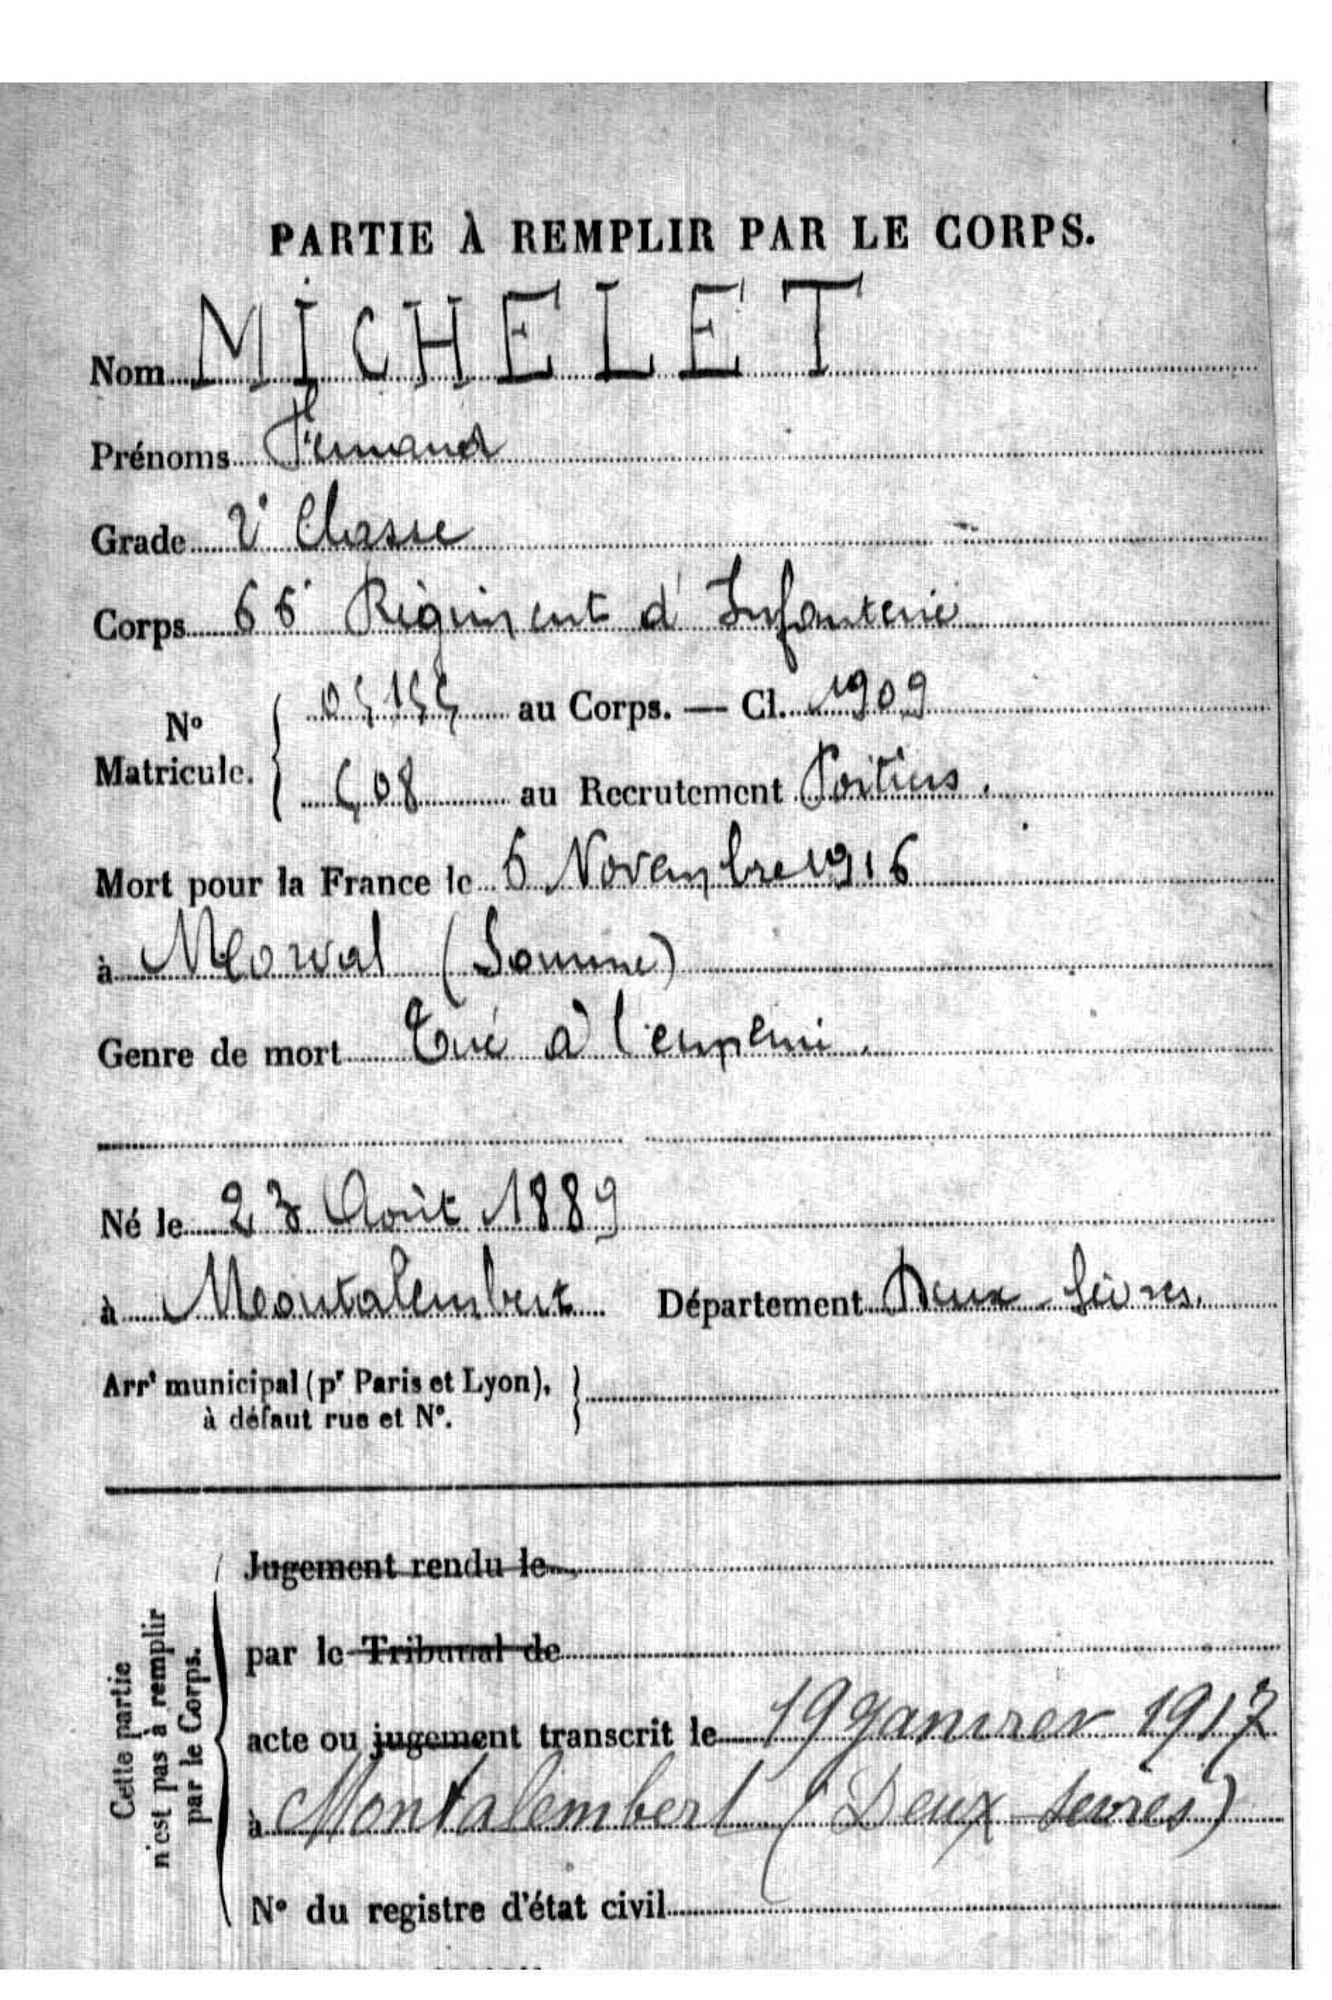 PARTIE À REMPLIR PAR LE CORPS.
Nom MICHELET
Prénoms Fernand
Grade 2e Classe
Corps 66e Régiment d'Infanterie
No Matricule. 05155 au Corps. — Cl. 1909
508 au Recrutement Poitiers.
Mort pour la France le 6 Novembre 1916
à Morval (Somme)
Genre de mort Tué à l'ennemi.
Né le 23 Août 1889
à Montalembert Département Deux-Sèvres.
Arrt municipal (pr Paris et Lyon),
à défaut rue et No.
Cette partie
n'est pas à remplir
par le Corps.
Jugement rendu le
par le Tribunal de
acte ou jugement transcrit le 19 Janvier 1917
à Montalembert (Deux-Sèvres)
No du registre d'état civil